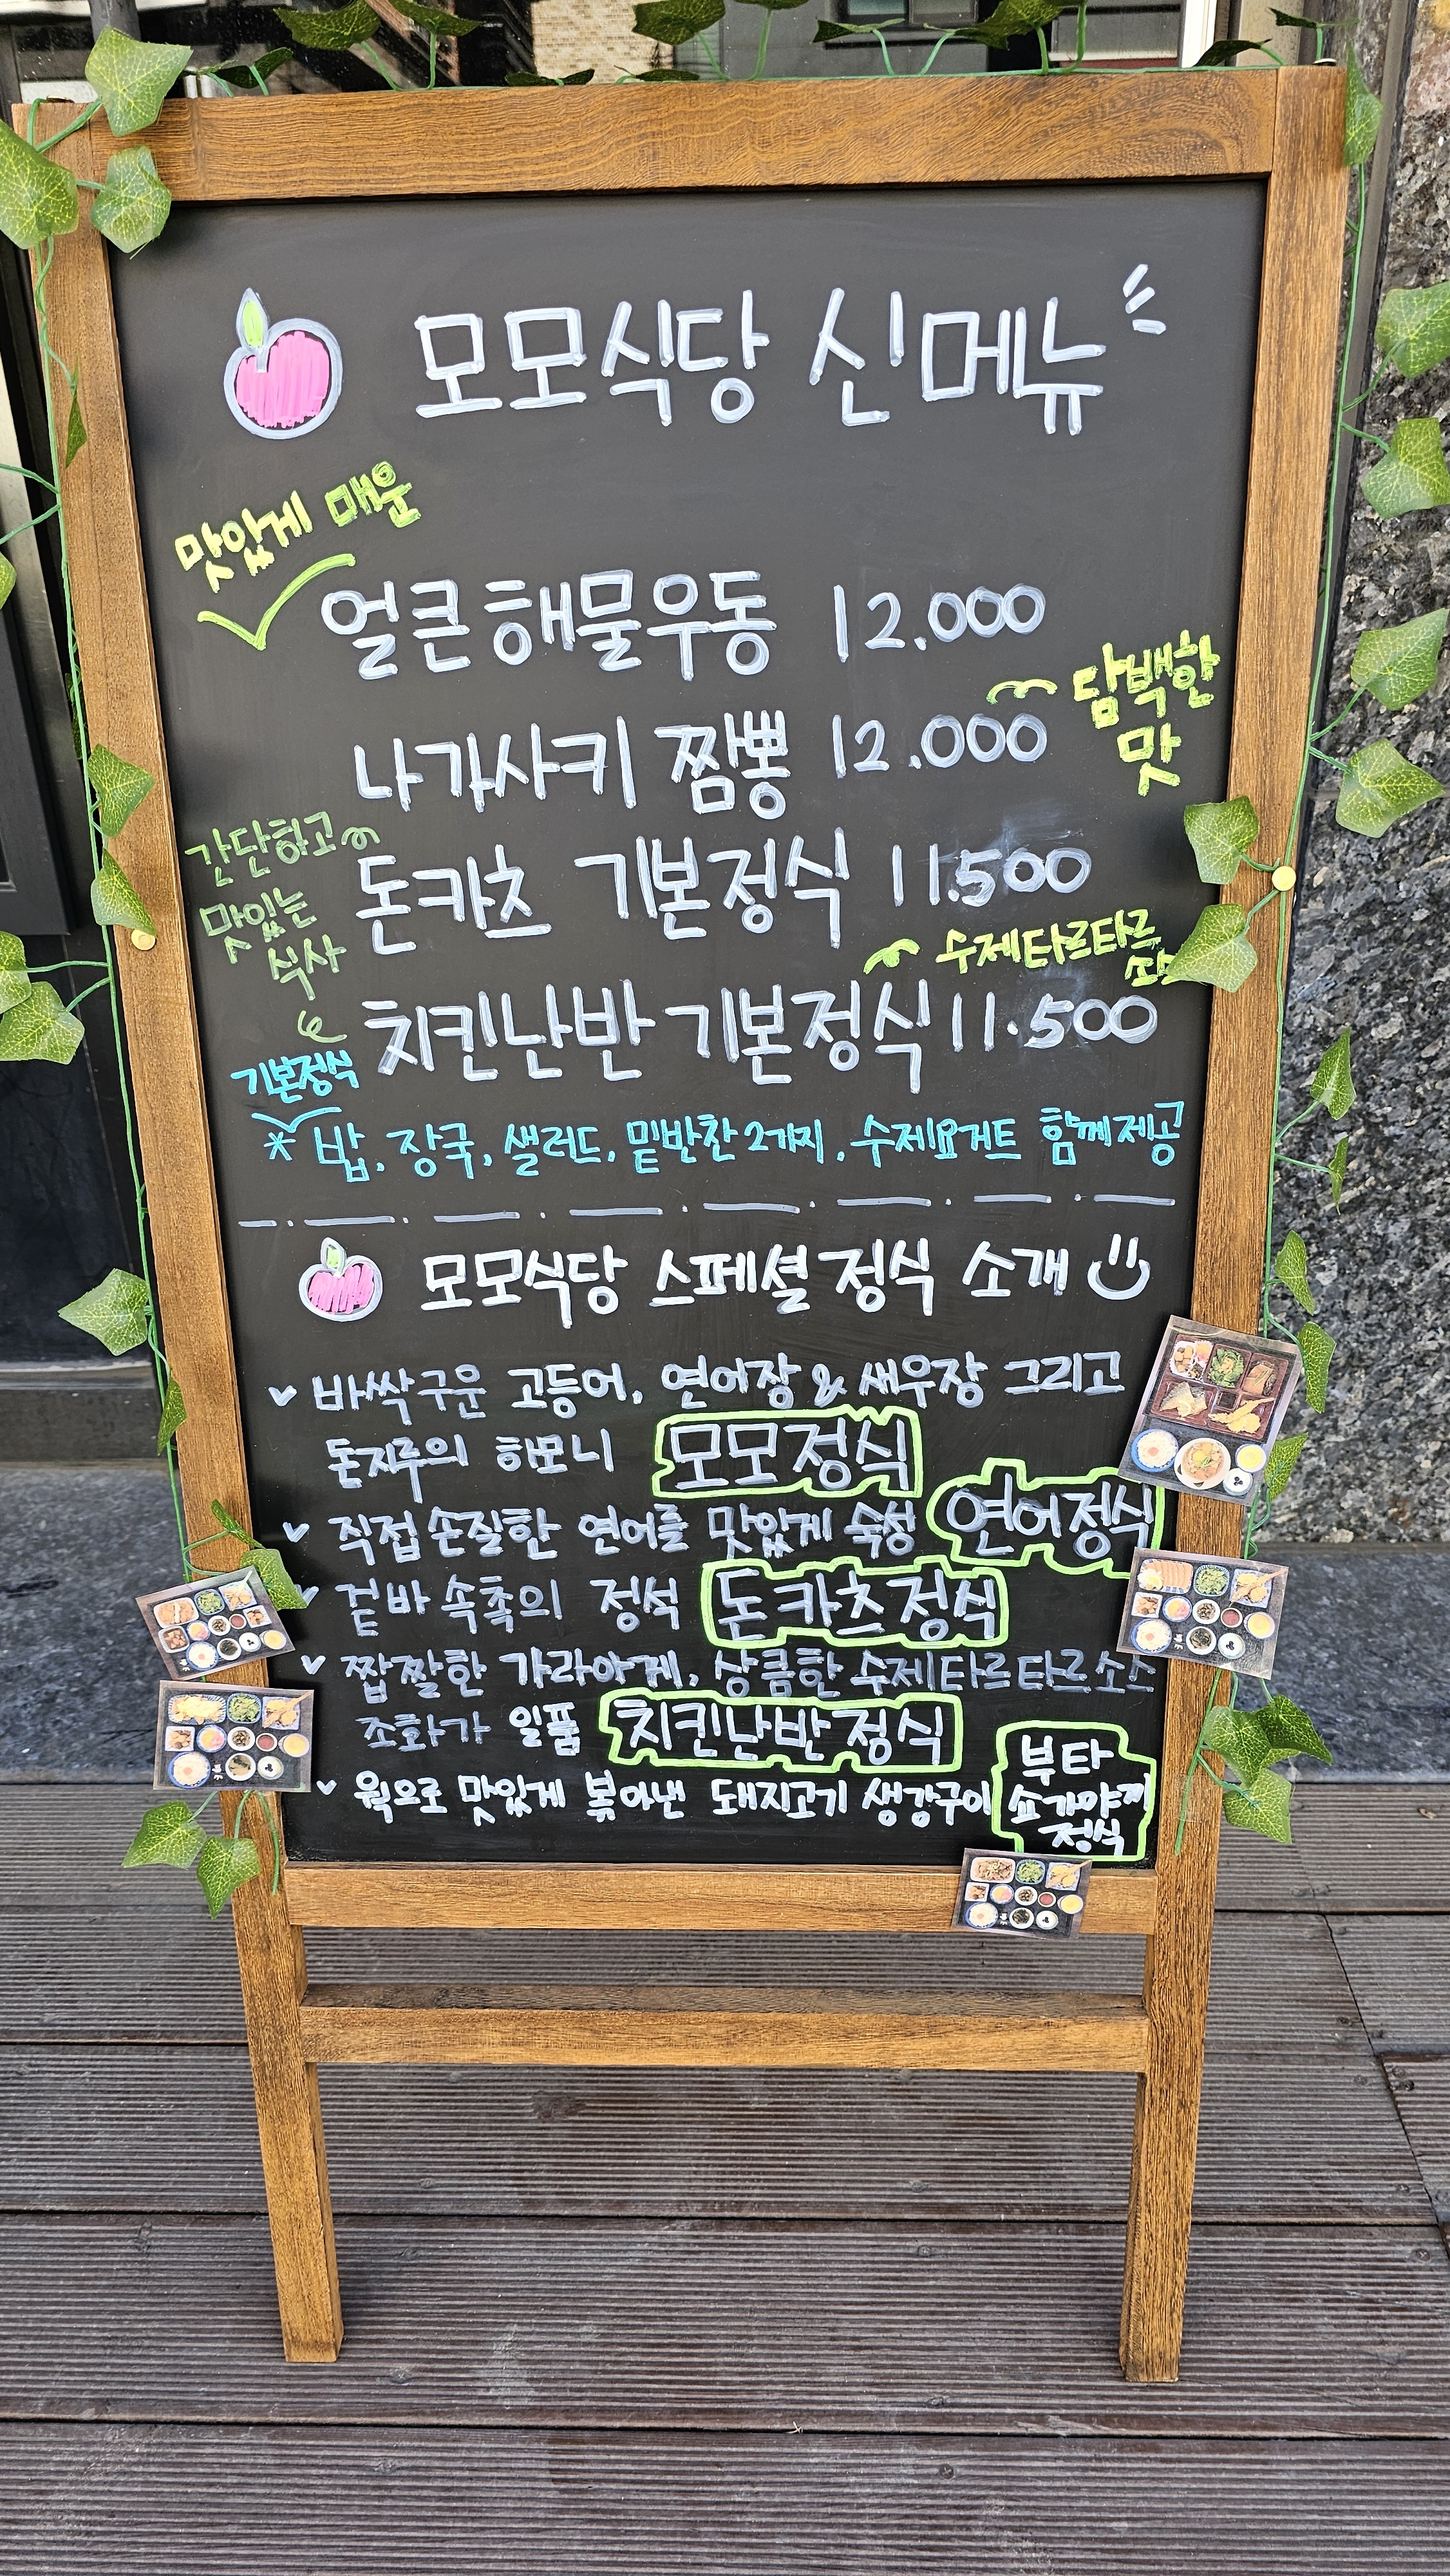 모모식당 신메뉴
맛있게 매운
얼큰해물우동 12.000
담백한
맛
나가사키 짬뽕 12.000
간단하고
맛있는
식사
돈카츠 기본정식 11.500
수제타르타르
소스
치킨난반 기본정식 11.500
기본정식
* 밥, 장국, 샐러드, 밑반찬2가지, 수제요거트 함께제공
모모식당 스페셜정식 소개
바싹구운 고등어, 연어장 & 새우장 그리고
돈지루의 하모니 모모정식
직접손질한 연어를 맛있게 숙성 연어정식
겉바속촉의 정석 돈카츠정식
짭짤한 가라아게, 상큼한 수제타르타르소스
조화가 일품 치킨난반정식
웍으로 맛있게 볶아낸 돼지고기 생강구이 부타
쇼가야끼
정식